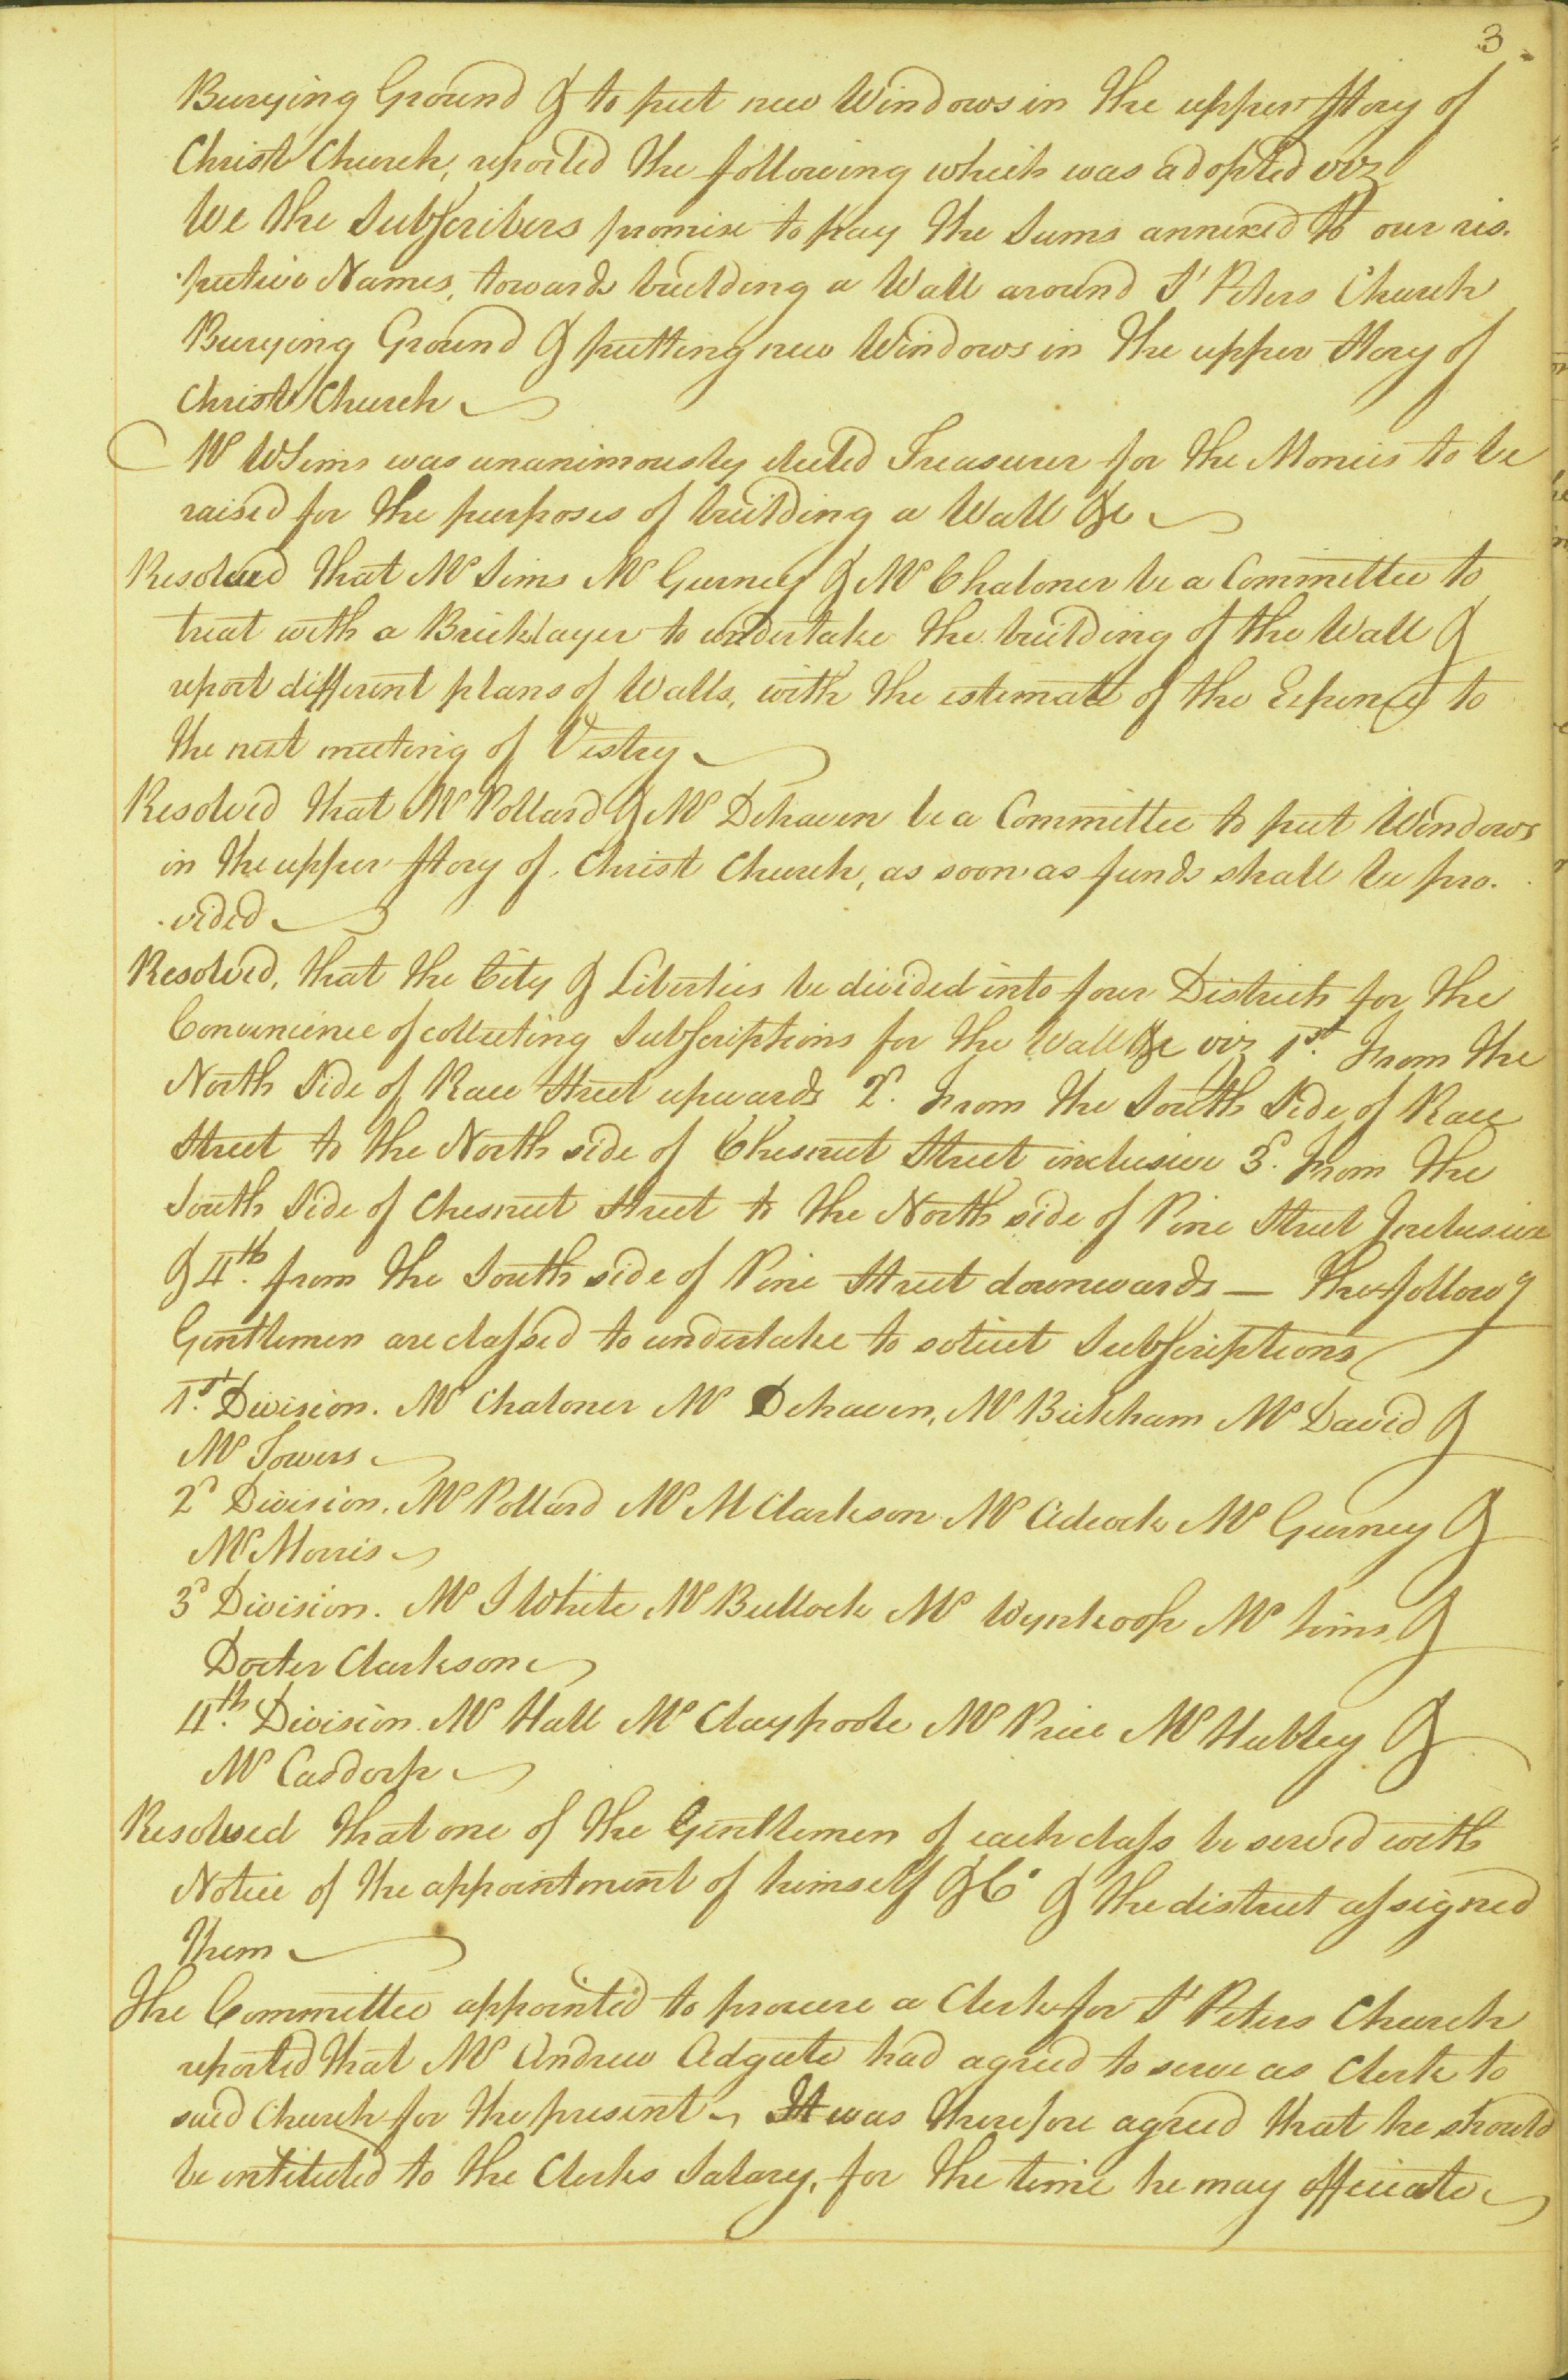 3
Burying Ground & to put new Windows in the upper Story of
Christ Church, reported the following which was adopted viz
We the Subscribers promise to pay the Sums annexed to our res-
-pective Names, towards building a Wall around St Peters Church
Burying Ground & putting new Windows in the upper Story of
Christ Church
Mr W Sims was unanimously elected Treasurer for the Monies to be
raised for the purposes of building a Wall &c
Resolved that Mr Sims Mr Gurney & Mr Chaloner be a Committee to
treat with a Bricklayer to undertake the building of the Wall &
report different plans of Walls, with the estimate of the Expence to
the next meeting of Vestry
Resolved that Mr Pollard & Mr Dehaven be a Committee to put Windows
in the upper Story of Christ Church, as soon as funds shall be pro-
-vided
Resolved, that the City & Liberties be divided into four Districts for the
Convenience of collecting Subscriptions for the Wall &c viz 1st. From the
North Side of Race Street upwards 2d. From the South Side of Race
Street to the North side of Chesnut Street inclusive 3d. From the
South Side of Chesnut Street to the North side of Pine Street Inclusive
& 4th. from the South side of Pine Street downwards — The followg
Gentlemen are classed to undertake to solicit Subscriptions
1st. Division. Mr Chaloner Mr Dehaven, Mr Bickham Mr David &
Mr Towers
2d Division. Mr Pollard Mr M Clarkson Mr Adcock Mr Gurney &
Mr Morris
3d Division. Mr J White Mr Bullock Mr Wynkoop Mr Sims &
Docter Clarkson
4th. Division. Mr Hall Mr Claypoole Mr Price Mr Hubley &
Mr Casdorp
Resolved that one of the Gentlemen of each class be served with
Notice of the appointment of himself & Co & the district assigned
them
The Committee appointed to procure a Clerk for St Peters Church
reported that Mr Andrew Adgate had agreed to serve as Clerk to
said Church for the present It was therefore agreed that he should
be intituled to the Clerks Salary, for the time he may officiate